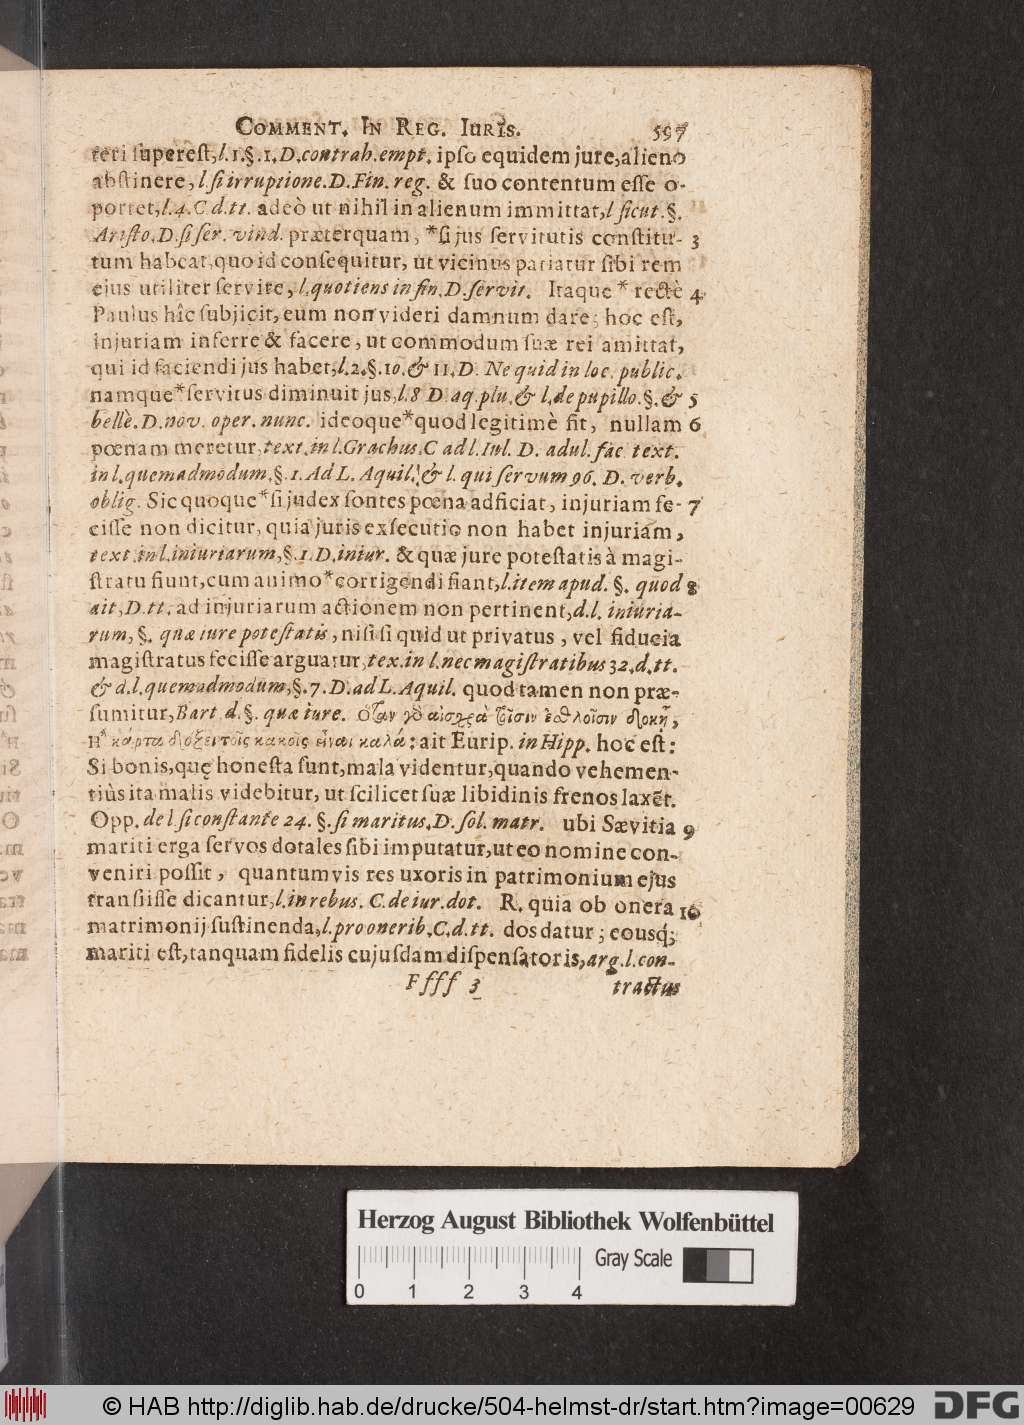 COMMENT. IN REG. IURIS. 597
teri superest, l.1.§.1.D.contrah.empt. ipso equidem jure, alieno
abstinere, l. si irruptione.D.Fin. reg. & suo contentum esse o-
portet, l.4.C d.tt. adeò ut nihil in alienum immittat, l sicut.§.
Aristo.D.si ser. vind. præterquam, *si jus servitutis constitu- 3
tum habeat, quo id consequitur, ut vicinus patiatur sibi rem
ejus utiliter servire, l.quotiens in fin.D.servit. Itaque * rectè 4
Paulus hîc subjicit, eum non videri damnum dare; hoc est,
injuriam inferre & facere, ut commodum suæ rei amittat,
qui id faciendi jus habet, l.2.§.10.& 11.D. Ne quid in loc. public.
namque*servitus diminuit jus, l.8 D aq.plu.& l.de pupillo.§.& 5
bellè.D.nov. oper. nunc. ideoque*quod legitimè fit, nullam 6
pœnam meretur, text.in l.Grachus.C ad l.Iul. D. adul. fac text.
in l.quemadmodum.§.1.Ad L. Aquil. & l. qui servum 96. D. verb.
oblig. Sic quoque*si judex sontes pœna adficiat, injuriam fe- 7
cisse non dicitur, quia juris exsecutio non habet injuriam,
text.in l.iniuriarum,§.1.D.iniur. & quæ jure potestatis à magi-
stratu fiunt, cum animo*corrigendi fiant, l.item apud. §. quod 8
ait, D.tt. ad injuriarum actionem non pertinent, d.l. iniuria-
rum, §. quæ iure potestatis, nisi si quid ut privatus, vel fiducia
magistratus fecisse arguatur, tex.in l.nec magistratibus 32.d.tt.
& d.l.quemadmodum,§.7.D.ad L. Aquil. quod tamen non præ-
sumitur, Bart d.§. quæ iure. Ὅταν γὸ αἰσχρὰ τοῖσιν ἐσθλοῖσιν δοκῇ,
Ἢ κάρτα δόξει τοῖς κακοῖς εἶναι καλά: ait Eurip. in Hipp. hoc est:
Si bonis, quę honesta sunt, mala videntur, quando vehemen-
tiùs ita malis videbitur, ut scilicet suæ libidinis frenos laxẽt.
Opp. de l si constante 24. §. si maritus.D. sol. matr. ubi Sævitia 9
mariti erga servos dotales sibi imputatur, ut eo nomine con-
veniri possit, quantumvis res uxoris in patrimonium ejus
transiisse dicantur, l.in rebus. C. de iur.dot. R. quia ob onera 10
matrimonij sustinenda, l.pro onerib.C.d.tt. dos datur; eousq́;
mariti est, tanquam fidelis cujusdam dispensatoris, arg.l.con-
Ffff 3 tractus
Herzog August Bibliothek Wolfenbüttel
Gray Scale
0 1 2 3 4
© HAB http://diglib.hab.de/drucke/504-helmst-dr/start.htm?image=00629 DFG